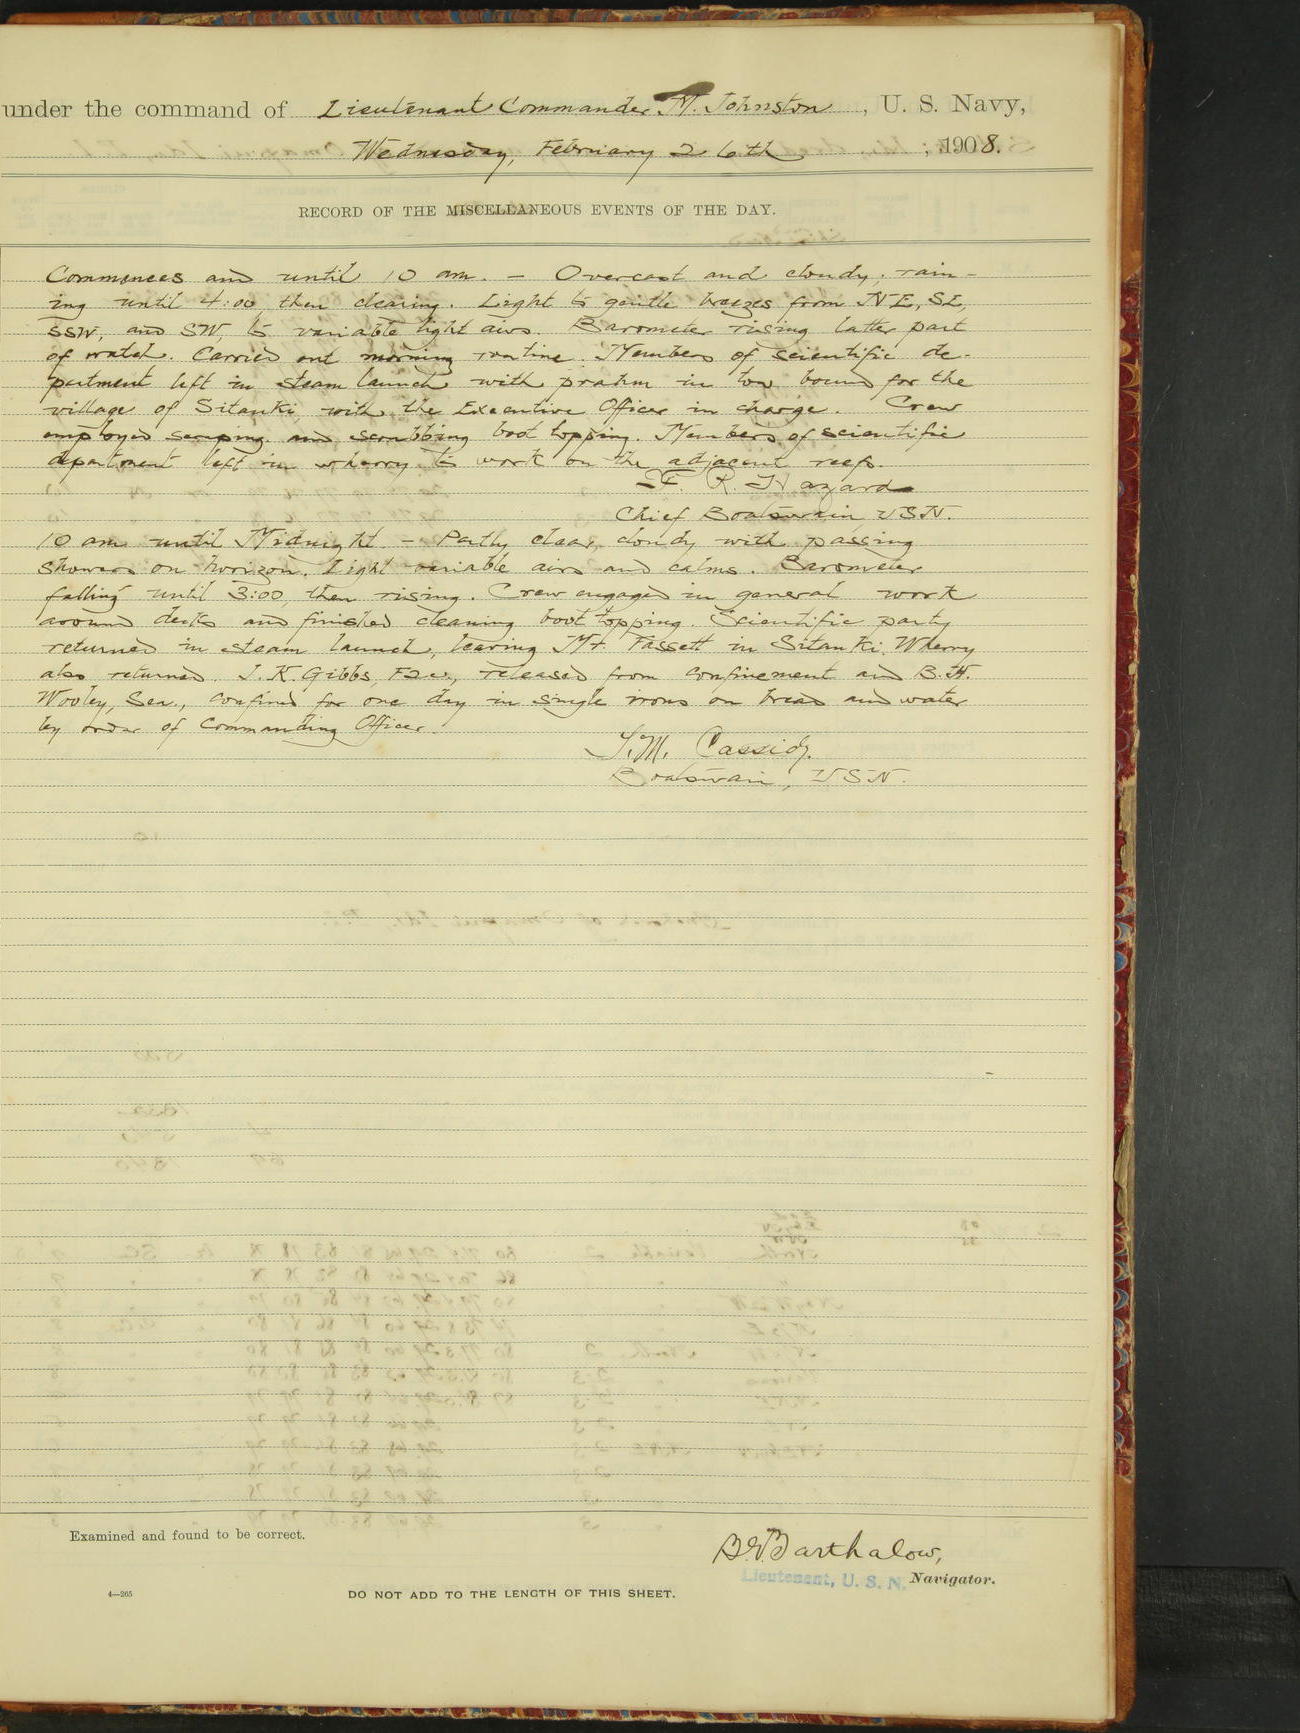 under the command of Lieutenant Commander M. Johnston, U. S. Navy,
Wednesday, February 26th, 1908.
RECORD OF THE MISCELLANEOUS EVENTS OF THE DAY.
Commences and until 10 am. — Overcast and cloudy, rain-
ing until 4:00 then clearing. Light to gentle breezes from NE, SE,
SSW, and SW, to variable light airs. Barometer rising latter part
of watch. Carried out morning routine. Members of scientific de-
partment left in steam launch with prahm in tow bound for the
village of Sitanki, with the Executive Officer in charge. Crew
employed scraping and scrubbing boot topping. Members of scientific
department left in wherry to work on the adjacent reefs.
F. R. Hazard
Chief Boatswain USN.
10 am until Midnight. — Partly clear, cloudy with passing
showers on horizon. Light variable airs and calms. Barometer
falling until 3:00, then rising. Crew engaged in general work
around decks and finished cleaning boot topping. Scientific party
returned in steam launch, leaving Mr. Fassett in Sitanki. Wherry
also returned. J. K. Gibbs, released from confinement and B. H.
Wooley, Sea., confined for one day in single irons on bread and water
by order of Commanding Officer.
J. M. Cassidy.
Boatswain, USN.
Examined and found to be correct.
Barthalow,
Lieutenant, U. S. N. Navigator.
4—265
DO NOT ADD TO THE LENGTH OF THIS SHEET.